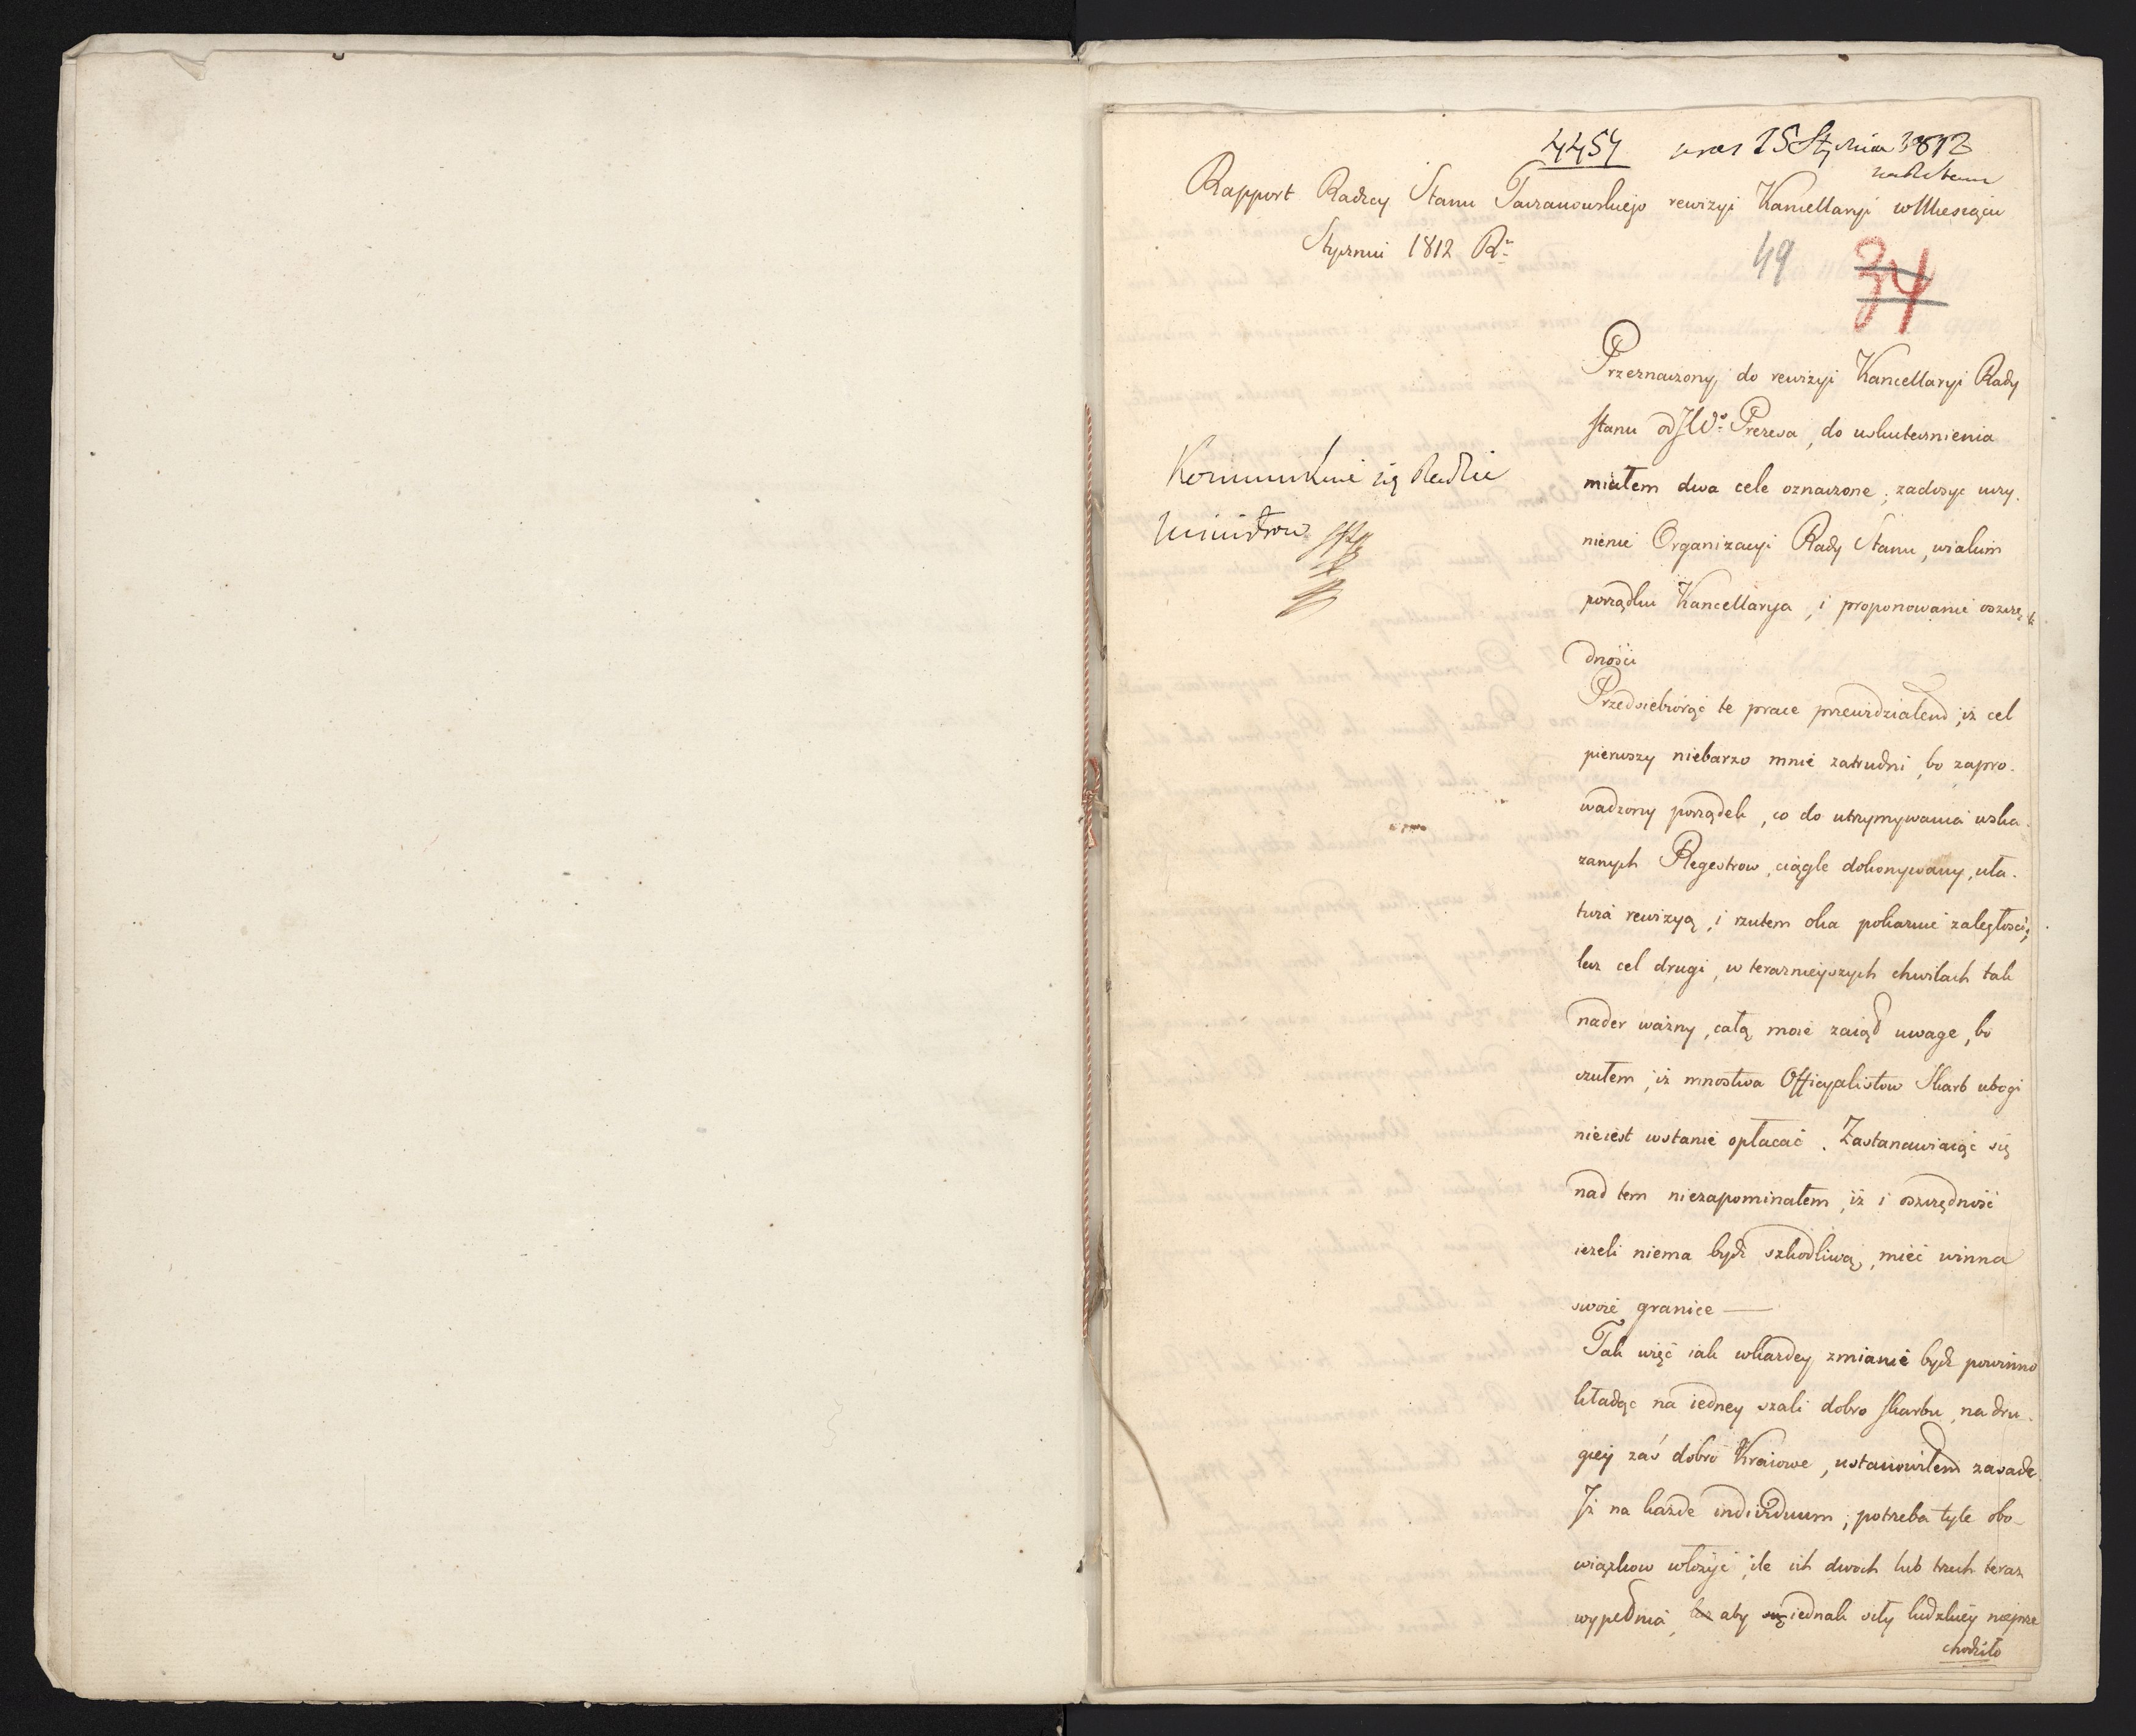 4454 15 Stycznia 1812
Rapport Radzcy Stanu Tarzanowskiego rewizyi Kancellaryi w Miesiącu
Styczniu 1812 Rᵘ
49 34
Przeznaczony do rewizyi Kancellaryi Rady
Stanu od JWᵒ Prezesa, do uskutecznienia
miałem dwa cele oznaczone; zadosyć uczy-
nienie Organizacyi Rady Stanu, w iakim
porządku Kancellarya, i proponowanie oszczę-
dności
Kommunikuie się Radzie
Ministrow
Przedsiebiorąc te prace przewidziałem, iż cel
pierwszy niebarzo mnie zatrudni, bo zapro-
wadzony porządek, co do utrzymywania wska-
zanych Regestrow, ciągle dokonywany, uła-
twia rewizyą, i rzutem oka pokazuie zaległość;
lecz cel drugi, w teraznieyszych chwilach tak
nader ważny, całą moie zaiął uwage, bo
czułem, iż mnostwa Officyalistow Skarb ubogi
nieiest wstanie opłacać. Zastanawiaiąc się
nad tem niezapominałem, iż i oszczędność
ieżeli niema bydź szkodliwą, mieć winna
swoie granice —
Tak więc iak wkażdey zmianie bydź powinno
kładąc na iedney szali dobro Skarbu, na dru-
giey zaś dobro Kraiowe, ustanowiłem zasadę
Iż na każde individuum, potrzeba tyle obo-
wiązkow włożyć, ile ich dwoch lub trzech teraz
wypełnia, aby iednak siły ludzkiey nieprze
chodziło